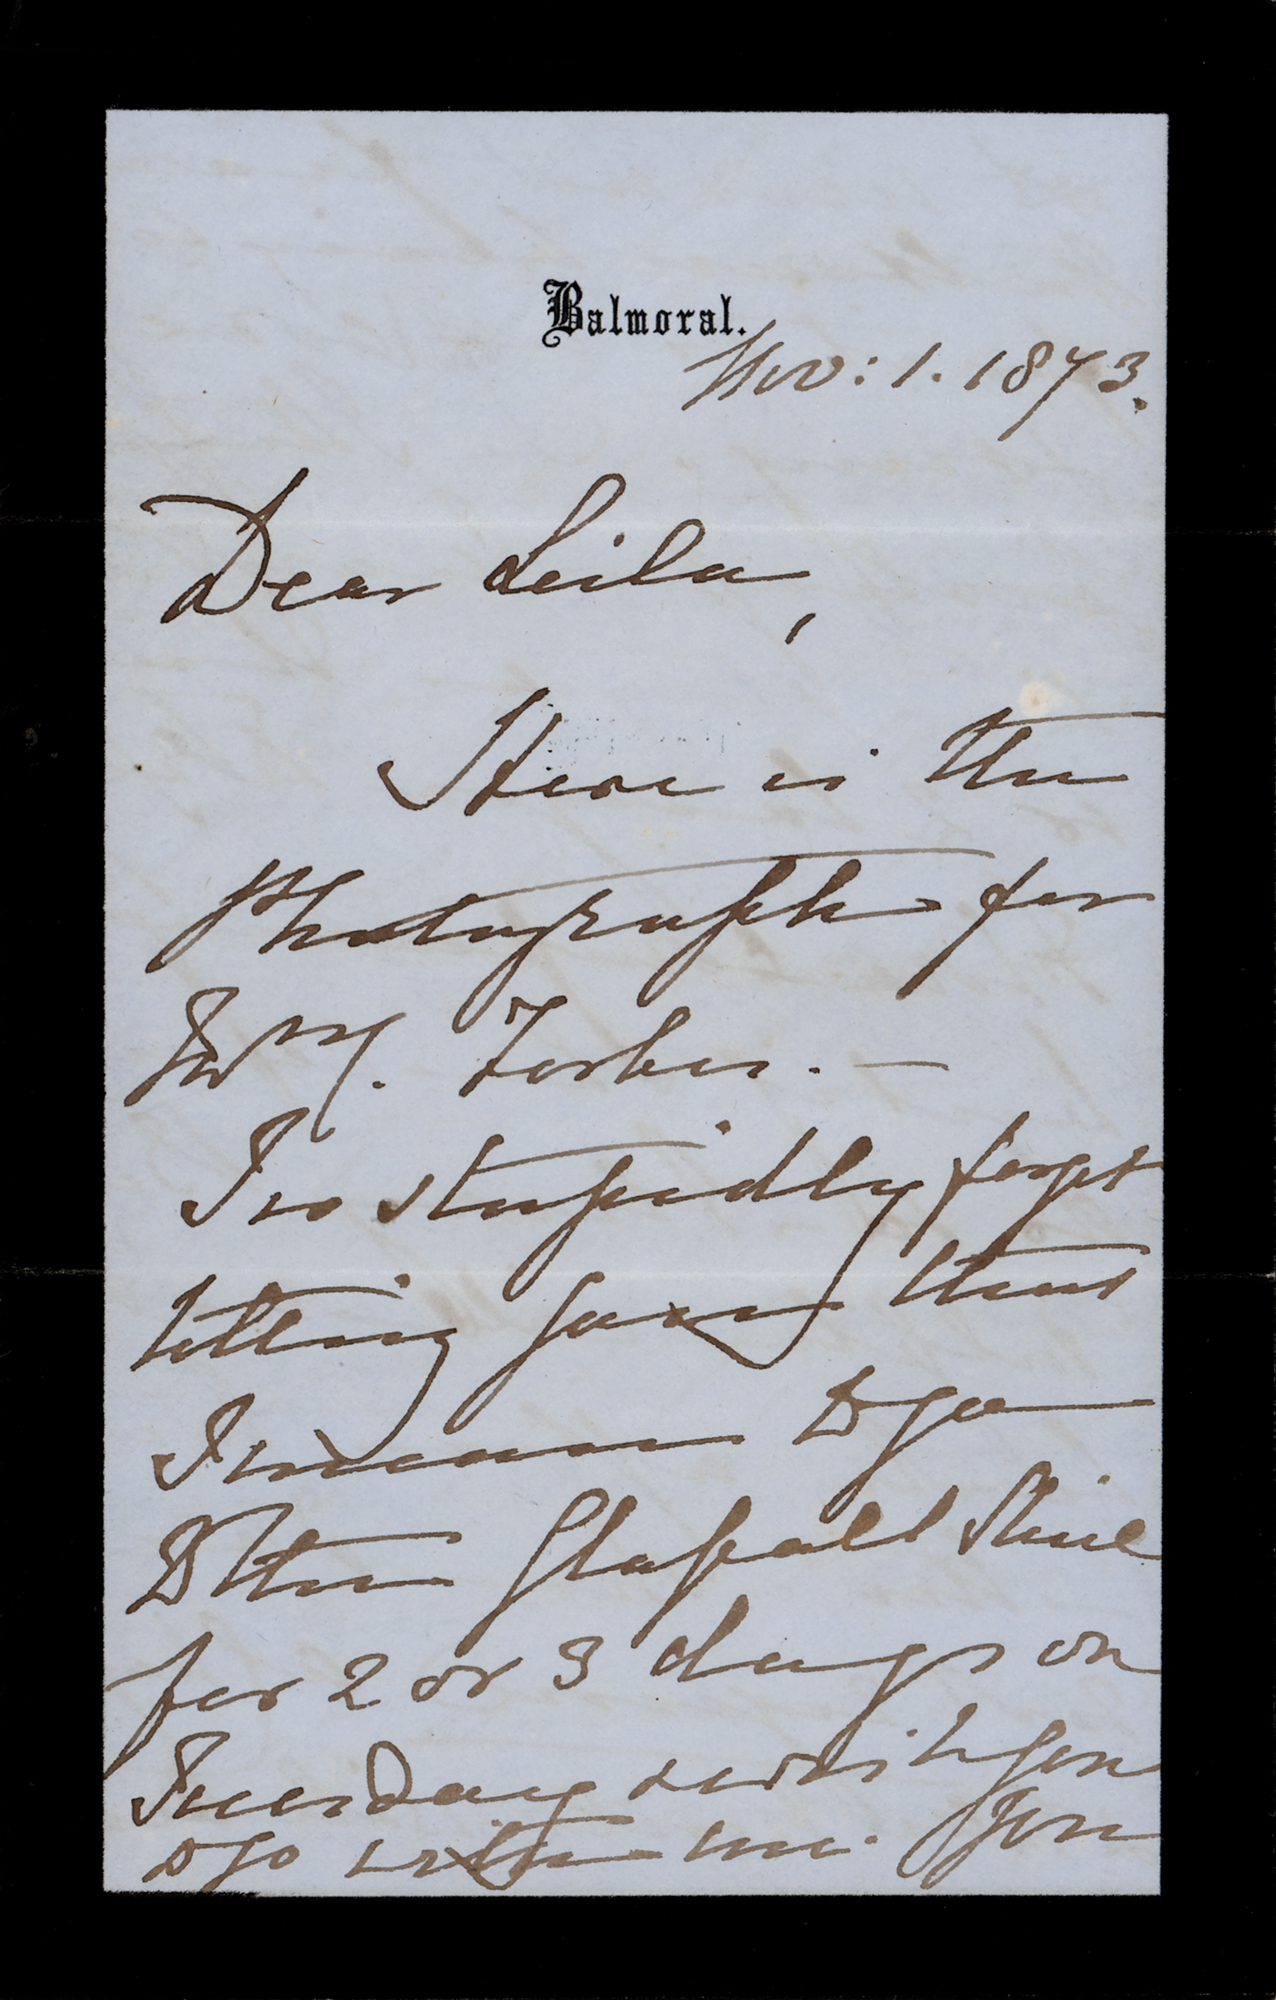 Balmoral.
Nov: 1. 1873.
Dear Leila,
Here is the
Photograph for
Forbes. —
I so stupidly forgot
telling you that
I mean to go
to the Glassalt Shiel
for 2 or 3 days on
Tuesday & wish you
to go with me. You